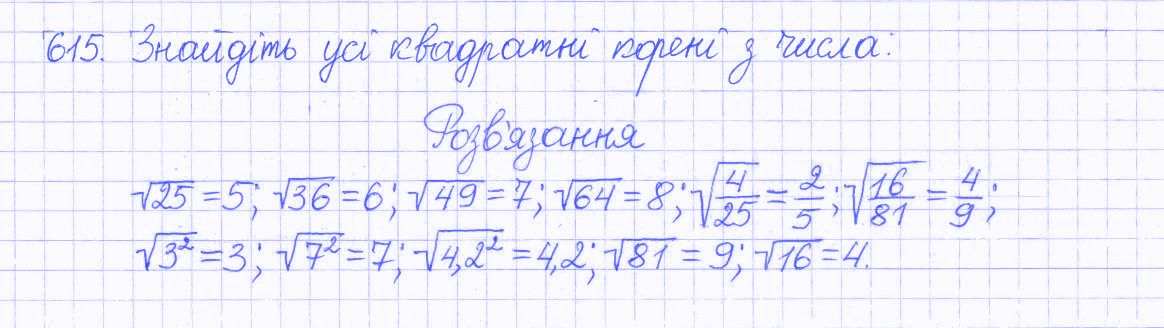 615. Знайдіть усі квадратні корені з числа:
Розв'язання
√25 = 5; √36 = 6; √49 = 7; √64 = 8; √(4/25) = 2/5; √(16/81) = 4/9;
√3² = 3; √7² = 7; √4,2² = 4,2; √81 = 9; √16 = 4.